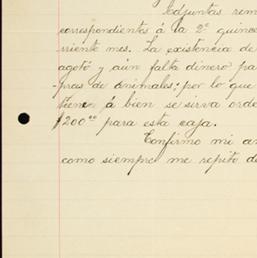 Adjuntas rem
correspondientes á la 2ª quince
rriente mes. La existencia de
agotó y aún falta dinero pa
pras de animales; por lo que
tienen á bien se sirva orde
$200.00 para esta caja.
Confirmo mi an
como siempre me repito de